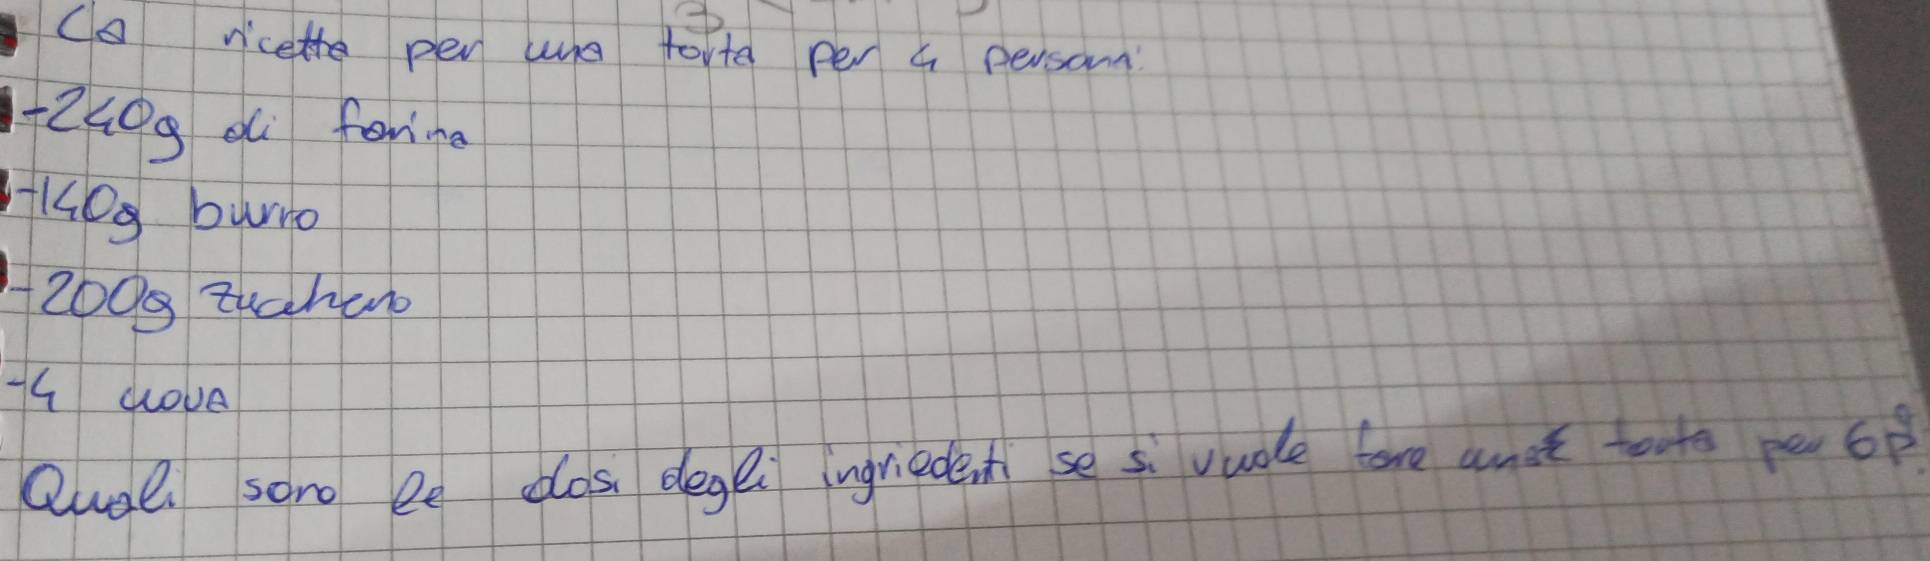 La ricetta per una torta per 4 persone:
-240g di farina
-140g burro
-200g zucchero
-4 uova
Quali sono le dosi degli ingriedenti se si vuole fare una torta per 6P